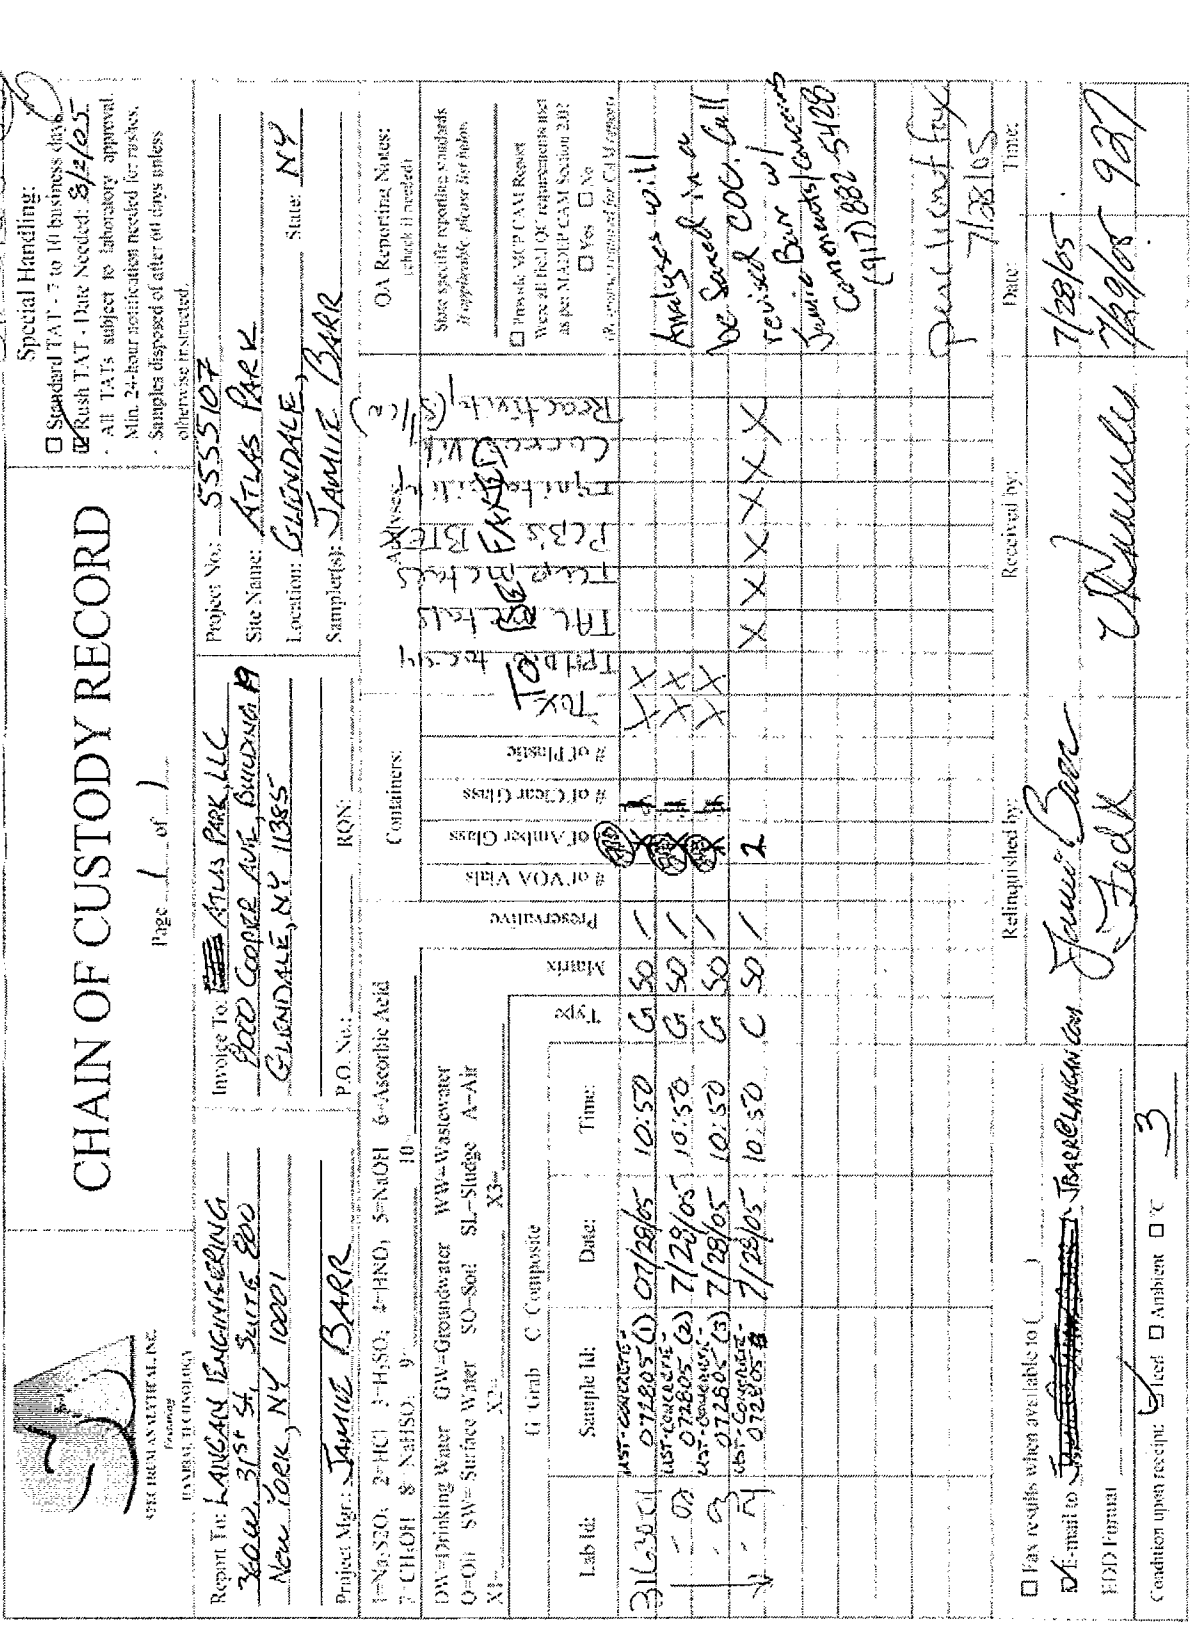 SPECTRUM ANALYTICAL, INC.
Featuring
HANIBAL TECHNOLOGY
CHAIN OF CUSTODY RECORD
Page 1 of 1
Special Handling:
☐ Standard TAT - 7 to 10 business days
☑ Rush TAT - Date Needed: 8/2/05
· All TATs subject to laboratory approval.
Min. 24-hour notification needed for rushes.
· Samples disposed of after 60 days unless
otherwise instructed.
Report To: LANGAN ENGINEERING
360 W. 31st St, SUITE 800
New YORK, NY 10001
Project Mgr.: JAMIE BARR
Invoice To: ATLAS PARK, LLC
8000 COOPER AVE, BUILDING 19
GLENDALE, NY 11385
P.O. No.: RQN:
Project No.: 5555107
Site Name: ATLAS PARK
Location: GLENDALE, State: NY
Sampler(s): JAMIE BARR
1=Na2S2O3 2=HCl 3=H2SO4 4=HNO3 5=NaOH 6=Ascorbic Acid
7=CH3OH 8=NaHSO4 9= 10=
DW=Drinking Water GW=Groundwater WW=Wastewater
O=Oil SW=Surface Water SO=Soil SL=Sludge A=Air
X1= X2= X3=
G=Grab C=Composite
Containers:
Analyses:
QA Reporting Notes:
(check if needed)
State specific reporting standards
if applicable please list below
☐ Provide MCP CAM Report
Were all field QC requirements met
as per MADEP CAM Section 2.0?
☐ Yes ☐ No
Lab Id: Sample Id: Date: Time: Type Matrix Preservative # of VOA Vials # of Amber Glass # of Clear Glass # of Plastic
TOX
TPH DRO
TAL metals
TCLP metals
PCB's
Ignitability
Corrosivity
Reactivity
TO BE FAXED
31630-01 UST-CONCRETE-072805 (1) 07/28/05 10:50 G SO / X X
-02 UST-CONCRETE-072805 (2) 7/28/05 10:50 G SO / X X
-03 UST-CONCRETE-072805 (3) 7/28/05 10:50 G SO / X X
-04 UST-CONCRETE-072805 7/28/05 10:50 C SO / 2 X X X X X X
Analyses will
be saved in a
revised COC. Call
Jamie Barr w/
Comments/Concerns
(917) 882-5428
per client fax
7/28/05
☐ Fax results when available to ( )
☑ E-mail to JBARR@LANGAN.COM
EDD Format
Condition upon receipt: ☑ Iced ☐ Ambient ☐ °C 3
Relinquished by: Received by: Date: Time:
Jamie Barr 7/28/05
FedX 7/29/05 927